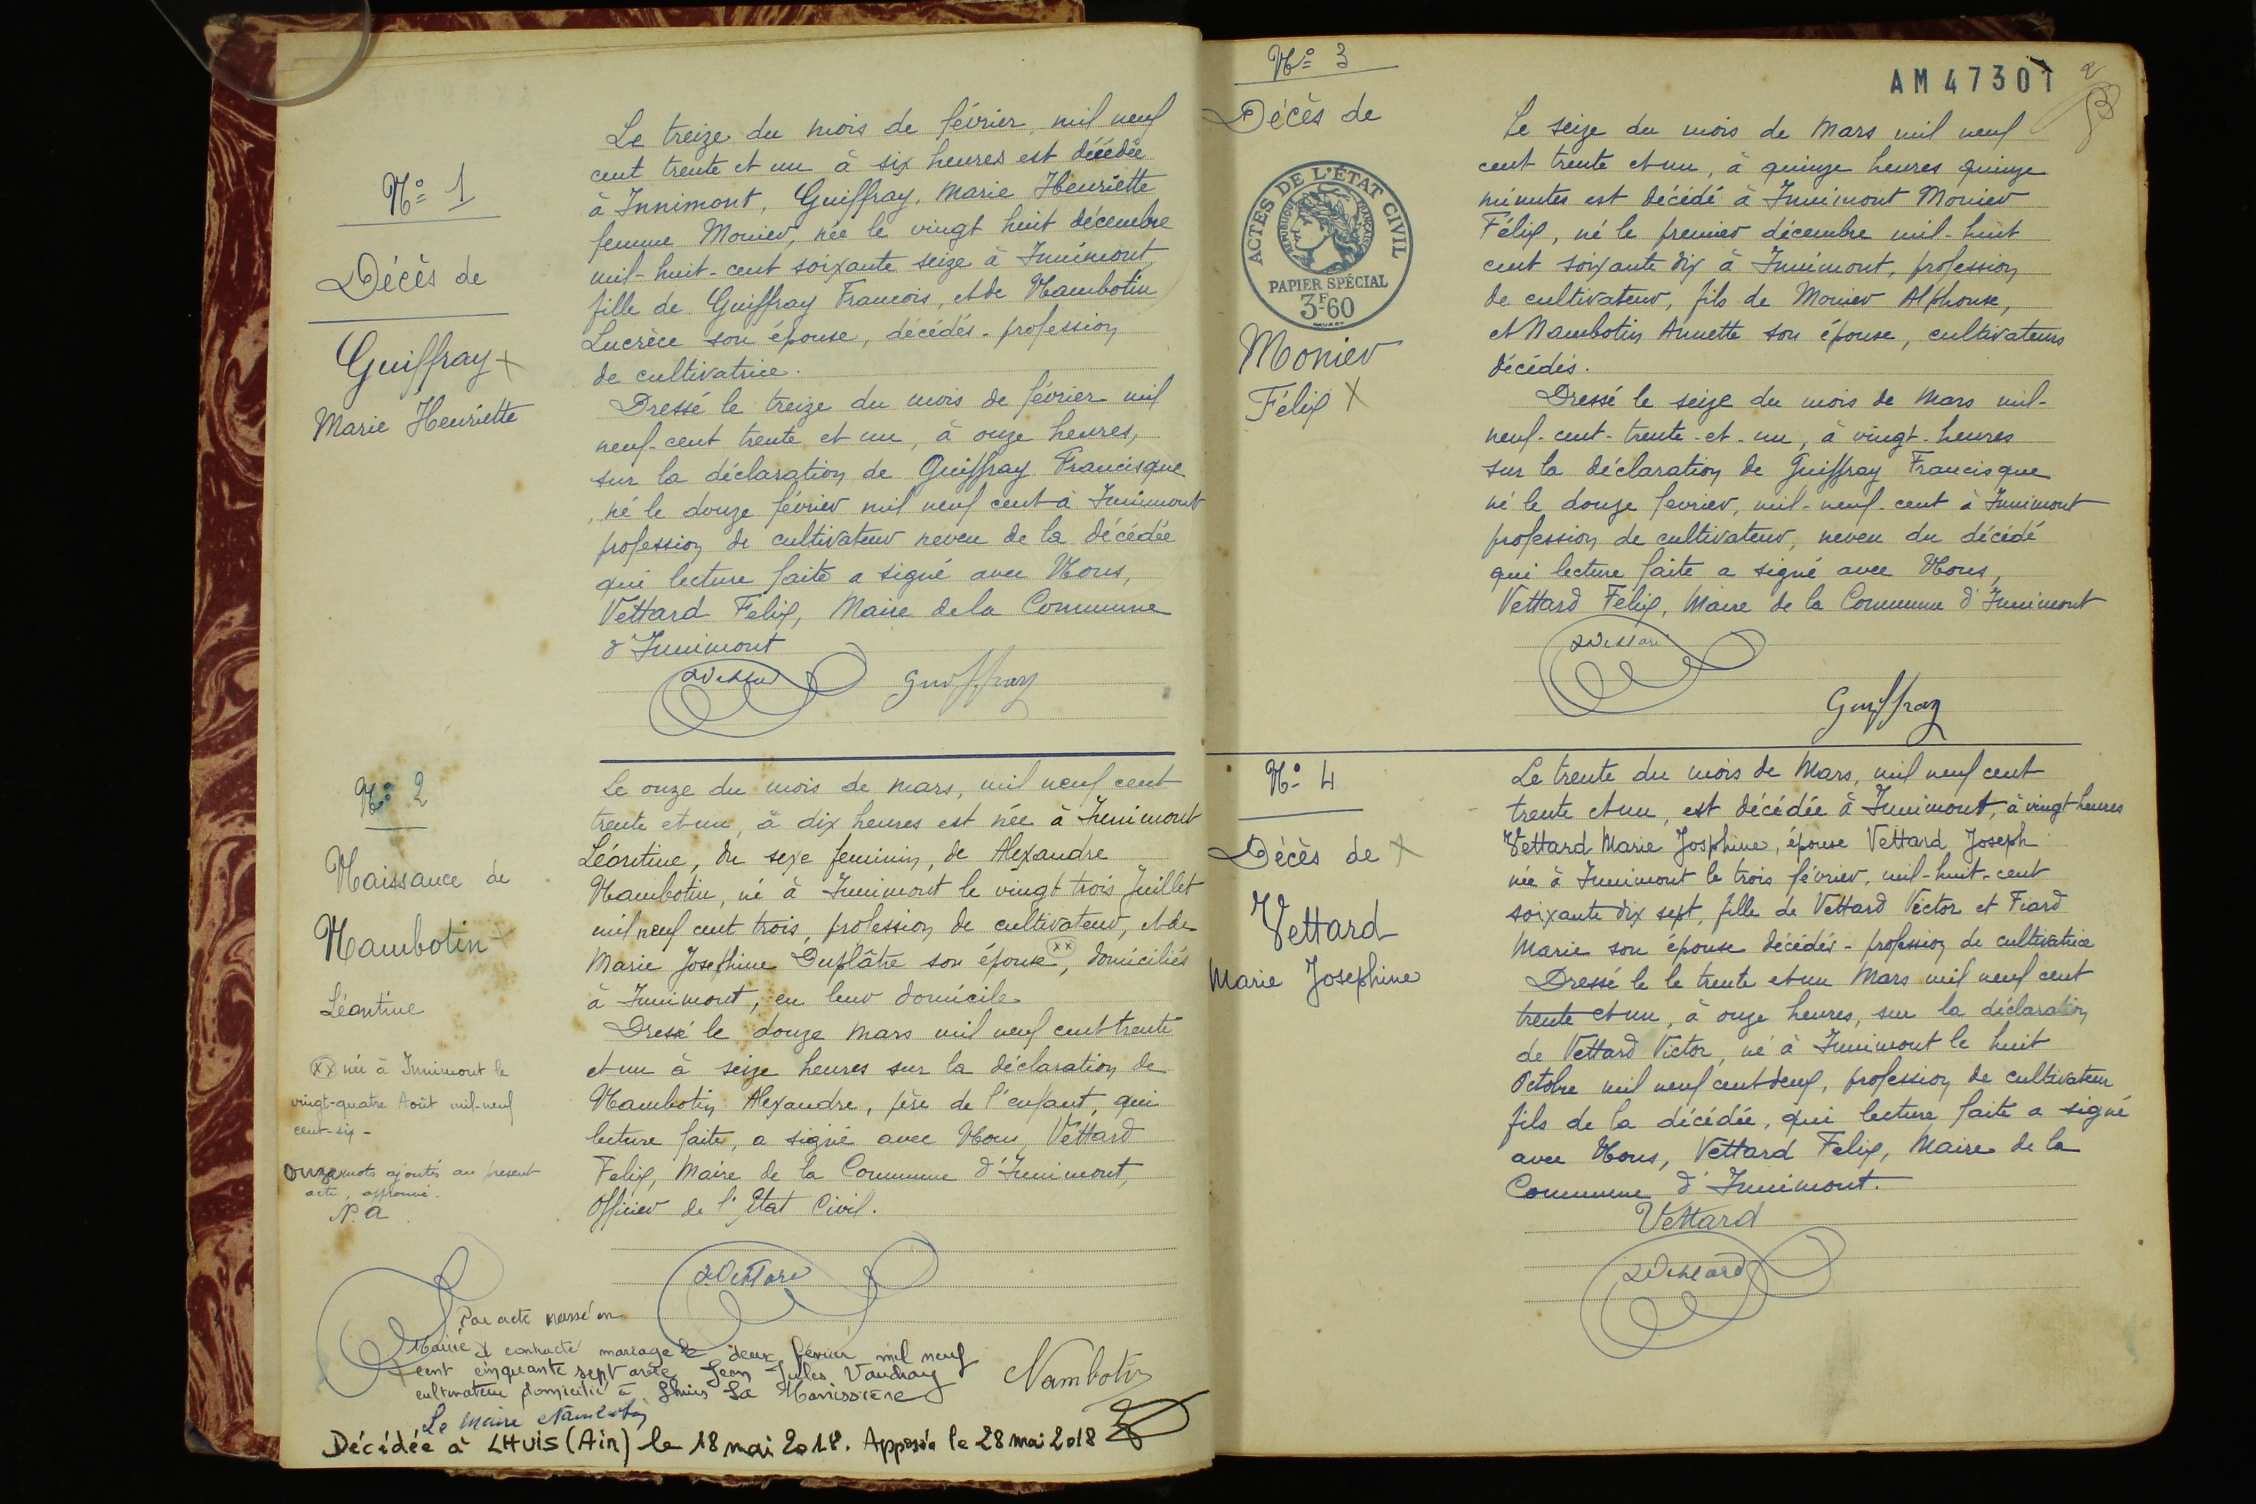 N° 1
Décès de
Guiffray
Marie Henriette
Le treize du mois de février mil neuf
cent trente et un à six heures est décédée
à Innimont, Guiffray, Marie Henriette
femme Monier, née le vingt huit décembre
mil-huit-cent soixante seize à Innimont,
fille de Guiffray Francois, et de Nambotin
Lucrèce son épouse, décédés - profession
de cultivatrice.
Dressé le treize du mois de février mil
neuf-cent trente et un, à onze heures,
sur la déclaration de Guiffray Francisque
né le douze février mil neuf cent à Innimont
profession de cultivateur neveu de la décédée
qui lecture faite a signé avec Nous,
Vettard Felix, Maire de la Commune
d'Innimont
Guiffray
N° 2
Naissance de
Nambotin
Léontine
xx née à Innimont le
vingt-quatre Août mil-neuf
cent-six -
Onze mots ajoutés au présent
acte, approuvé.
N. A.
Le onze du mois de mars, mil neuf cent
trente et un, à dix heures est née à Innimont
Léontine, du sexe feminin, de Alexandre
Nambotin, né à Innimont le vingt trois Juillet
mil neuf cent trois, profession de cultivateur, et de
Marie Josephine Duplâtre son épouse xx, domiciliés
à Innimont, en leur domicile
Dressé le douze Mars mil neuf cent trente
et un à seize heures sur la déclaration de
Nambotin Alexandre, père de l'enfant, qui
lecture faite, a signé avec Nous, Vettard
Felix, Maire de la Commune d'Innimont,
Officier de l'Etat Civil.
Vettard
Par acte passé en
Mairie a contracté mariage le deux février mil neuf
cent cinquante sept avec Jean Jules Vaudray
cultivateur domicilié à Lhuis La
Le Maire Nambotin
Nambotin
Décédée à LHUIS (Ain) le 18 mai 2018. Apposée le 28 mai 2018
N° 3
Décès de
ACTES DE L'ÉTAT CIVIL
RÉPUBLIQUE FRANÇAISE
PAPIER SPÉCIAL
3F60
Monier
Félix
AM 47301
2
Le seize du mois de Mars mil neuf
cent trente et un, à quinze heures quinze
minutes est décédé à Innimont Monier
Félix, né le premier décembre mil-huit
cent soixante dix à Innimont, profession
de cultivateur, fils de Monier Alphonse,
et Nambotin Annette son épouse, cultivateurs
décédés.
Dressé le seize du mois de Mars mil-
neuf-cent-trente-et-un, à vingt-heures
sur la déclaration de Guiffray Francisque
né le douze fevrier, mil-neuf-cent à Innimont
profession de cultivateur, neveu du décédé
qui lecture faite a signé avec Nous,
Vettard Félix, Maire de la Commune d'Innimont
Vettard
Guiffray
N° 4
Décès de
Vettard
Marie Josephine
Le trente du mois de Mars, mil neuf cent
trente et un, est décédée à Innimont, à vingt heures
Vettard Marie Josphine, épouse Vettard Joseph
née à Innimont le trois février, mil-huit-cent
soixante dix sept, fille de Vettard Victor et Fiard
Marie son épouse décédés - profession de cultivatrice
Dressé le le trente et un Mars mil neuf cent
trente et un, à onze heures, sur la déclaration
de Vettard Victor, né à Innimont le huit
Octobre mil neuf cent deux, profession de cultivateur
fils de la décédée, qui lecture faite a signé
avec Nous, Vettard Felix, Maire de la
Commune d'Innimont.
Vettard
Vettard